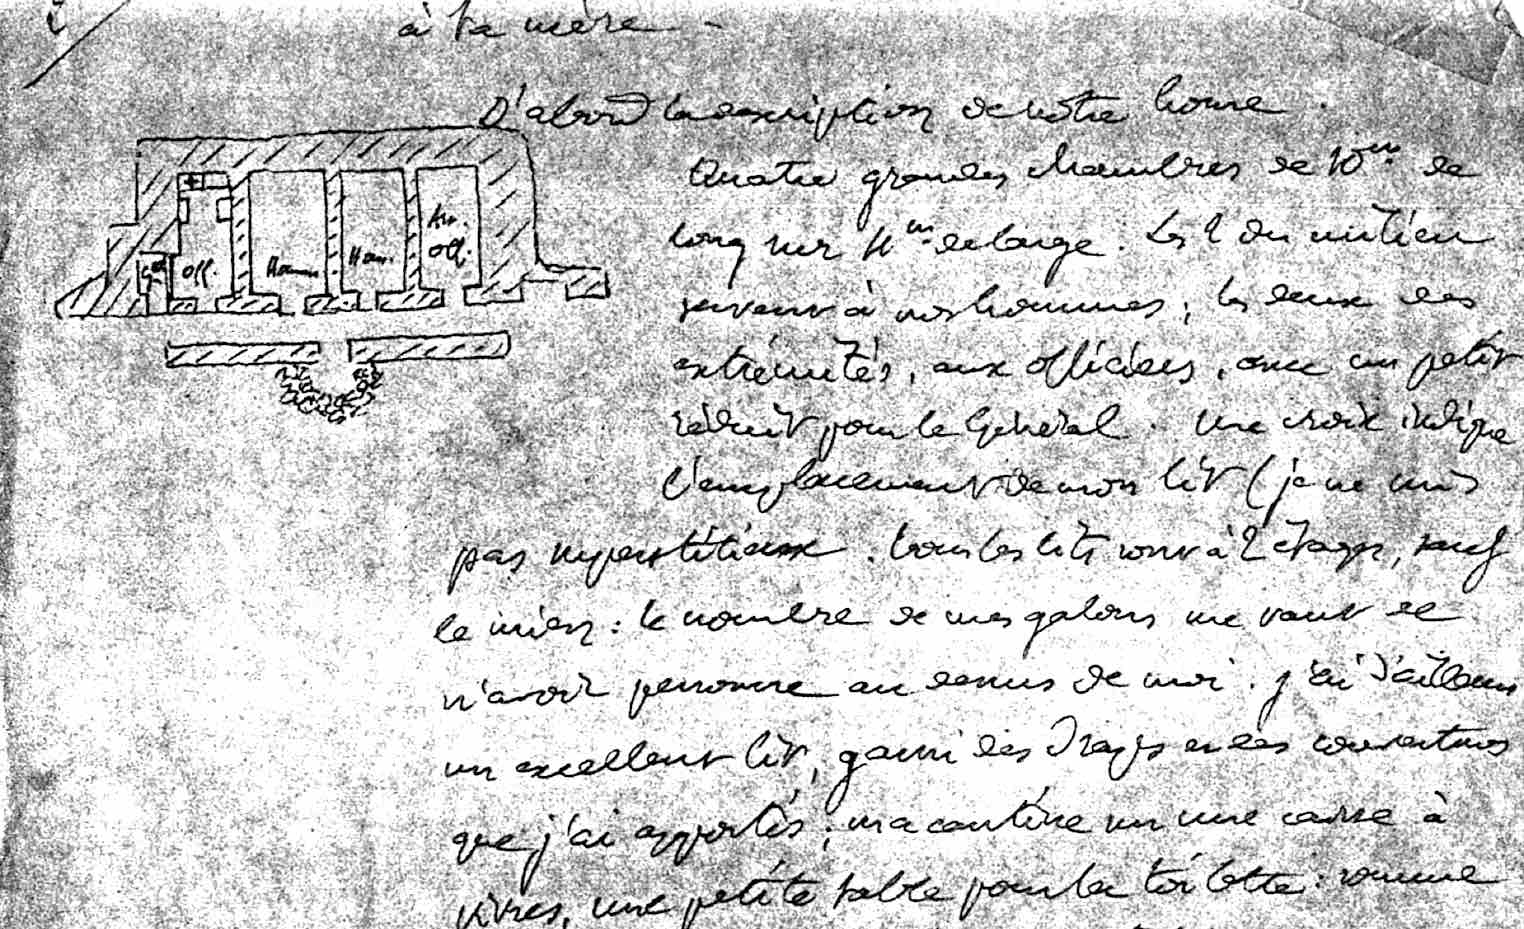 2/
à ta mère –
D'abord la description de notre home.
Quatre grandes chambres de 10m de
long sur 4m de large. Les 2 du milieu
servent à nos hommes ; les deux des
extrémités, aux officiers, avec un petit
réduit pour le Général. Une croix indique
l'emplacement de mon lit (je ne suis
pas superstitieux. Tous les lits sont à 2 étages, sauf
le mien : le nombre de mes galons me vaut de
n'avoir personne au dessus de moi. J'ai d'ailleurs
un excellent lit, garni des draps et des couvertures
que j'ai apportés ; ma cantine sur une caisse à
vivres, une petite table pour la toilette : somme
Gal
Off.
Homm.
Hom.
Off.